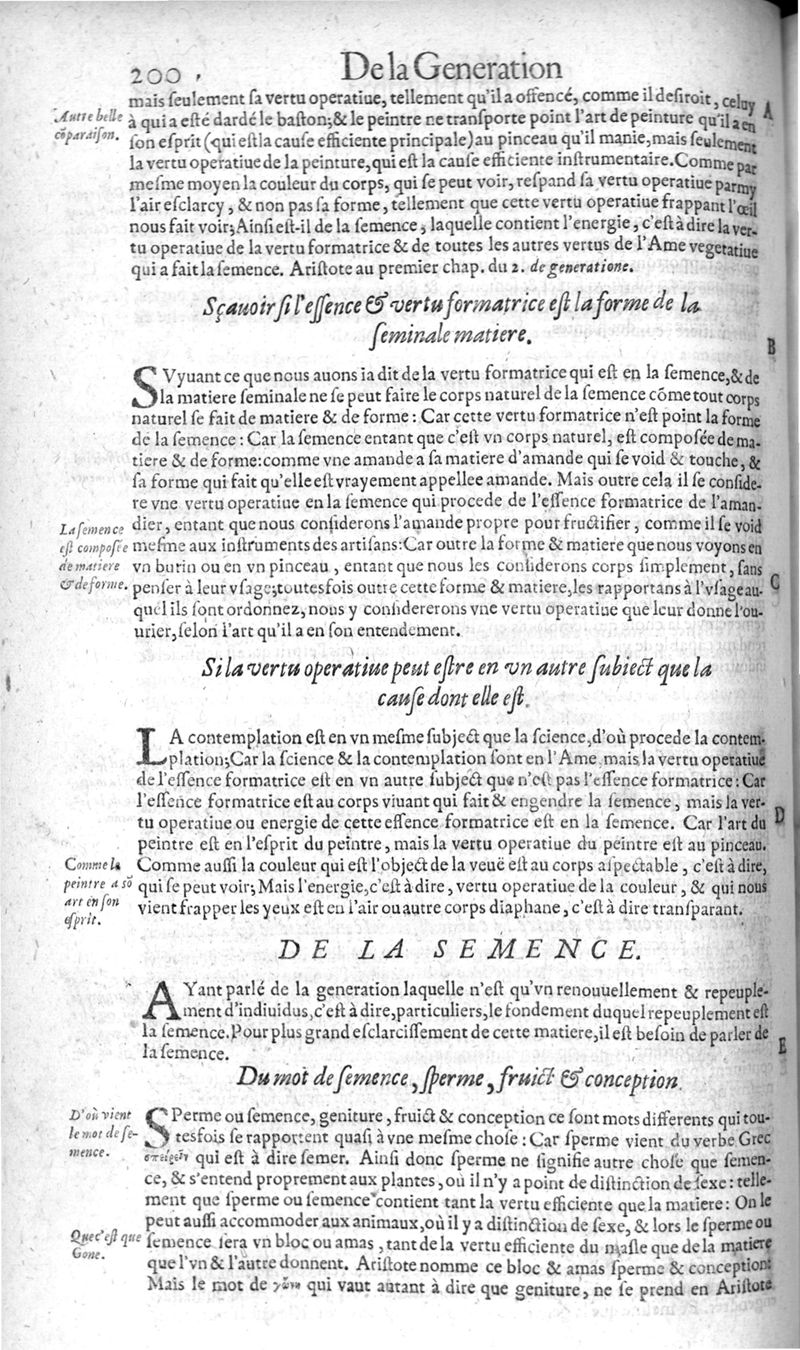 200
De la Generation
mais ſeulement ſa vertu operatiue, tellement qu'il a offencé, comme il deſiroit, celuy
à qui a eſté dardé le baſton; & le peintre ne tranſporte point l'art de peinture qu'il a en
ſon eſprit (qui eſt la cauſe efficiente principale) au pinceau qu'il manie, mais ſeulement
la vertu operatiue de la peinture, qui eſt la cauſe efficiente inſtrumentaire. Comme par
meſme moyen la couleur du corps, qui ſe peut voir, reſpand ſa vertu operatiue parmy
l'air eſclarcy, & non pas ſa forme, tellement que cette vertu operatiue frappant l'œil
nous fait voir; Ainſi eſt-il de la ſemence, laquelle contient l'energie, c'eſt à dire la ver-
tu operatiue de la vertu formatrice & de toutes les autres vertus de l'Ame vegetatiue
qui a fait la ſemence. Ariſtote au premier chap. du 2. de generatione.
Autre belle
cōparaiſon.
A
Sçauoir ſi l'eſſence & vertu formatrice eſt la forme de la
ſeminale matiere.
B
SVyuant ce que nous auons ia dit de la vertu formatrice qui eſt en la ſemence, & de
la matiere ſeminale ne ſe peut faire le corps naturel de la ſemence cōme tout corps
naturel ſe fait de matiere & de forme: Car cette vertu formatrice n'eſt point la forme
de la ſemence: Car la ſemence entant que c'eſt vn corps naturel, eſt compoſée de ma-
tiere & de forme: comme vne amande a ſa matiere d'amande qui ſe void & touche, &
ſa forme qui fait qu'elle eſt vrayement appellee amande. Mais outre cela il ſe conſide-
re vne vertu operatiue en la ſemence qui procede de l'eſſence formatrice de l'aman-
dier, entant que nous conſiderons l'amande propre pour fructifier, comme il ſe void
meſme aux inſtruments des artiſans: Car outre la forme & matiere que nous voyons en
vn burin ou en vn pinceau, entant que nous les conſiderons corps ſimplement, ſans
penſer à leur vſage; toutesfois outre cette forme & matiere, les rapportans à l'vſage au-
quel ils ſont ordonnez, nous y conſidererons vne vertu operatiue que leur donne l'ou-
urier, ſelon l'art qu'il a en ſon entendement.
La ſemence
eſt compoſée
de matiere
& de forme.
C
Si la vertu operatiue peut eſtre en vn autre ſubiect que la
cauſe dont elle eſt.
LA contemplation eſt en vn meſme ſubject que la ſcience, d'où procede la contem-
plation; Car la ſcience & la contemplation ſont en l'Ame, mais la vertu operatiue
de l'eſſence formatrice eſt en vn autre ſubject que n'eſt pas l'eſſence formatrice: Car
l'eſſence formatrice eſt au corps viuant qui fait & engendre la ſemence, mais la ver-
tu operatiue ou energie de cette eſſence formatrice eſt en la ſemence. Car l'art du
peintre eſt en l'eſprit du peintre, mais la vertu operatiue du peintre eſt au pinceau.
Comme auſſi la couleur qui eſt l'object de la veuë eſt au corps aſpectable, c'eſt à dire,
qui ſe peut voir; Mais l'energie, c'eſt à dire, vertu operatiue de la couleur, & qui nous
vient frapper les yeux eſt en l'air ou autre corps diaphane, c'eſt à dire tranſparant.
D
Comme le
peintre a sō
art en ſon
eſprit.
DE LA SEMENCE.
AYant parlé de la generation laquelle n'eſt qu'vn renouuellement & repeuple-
ment d'indiuidus, c'eſt à dire, particuliers, le fondement duquel repeuplement eſt
la ſemence. Pour plus grand eſclarciſſement de cette matiere, il eſt beſoin de parler de
la ſemence.
E
Du mot de ſemence, ſperme, fruict & conception.
SPerme ou ſemence, geniture, fruict & conception ce ſont mots differents qui tou-
tesfois ſe rapportent quaſi à vne meſme choſe: Car ſperme vient du verbe Grec
σπείρειν qui eſt à dire ſemer. Ainſi donc ſperme ne ſignifie autre choſe que ſemen-
ce, & s'entend proprement aux plantes, où il n'y a point de diſtinction de ſexe: telle-
ment que ſperme ou ſemence contient tant la vertu efficiente que la matiere: On le
peut auſſi accommoder aux animaux, où il y a diſtinction de ſexe, & lors le ſperme ou
ſemence ſera vn bloc ou amas, tant de la vertu efficiente du maſle que de la matiere
que l'vn & l'autre donnent. Ariſtote nomme ce bloc & amas ſperme & conception:
Mais le mot de γονὴ qui vaut autant à dire que geniture, ne ſe prend en Ariſtote
D'où vient
le mot de ſe-
mence.
Que c'eſt que
Gone.